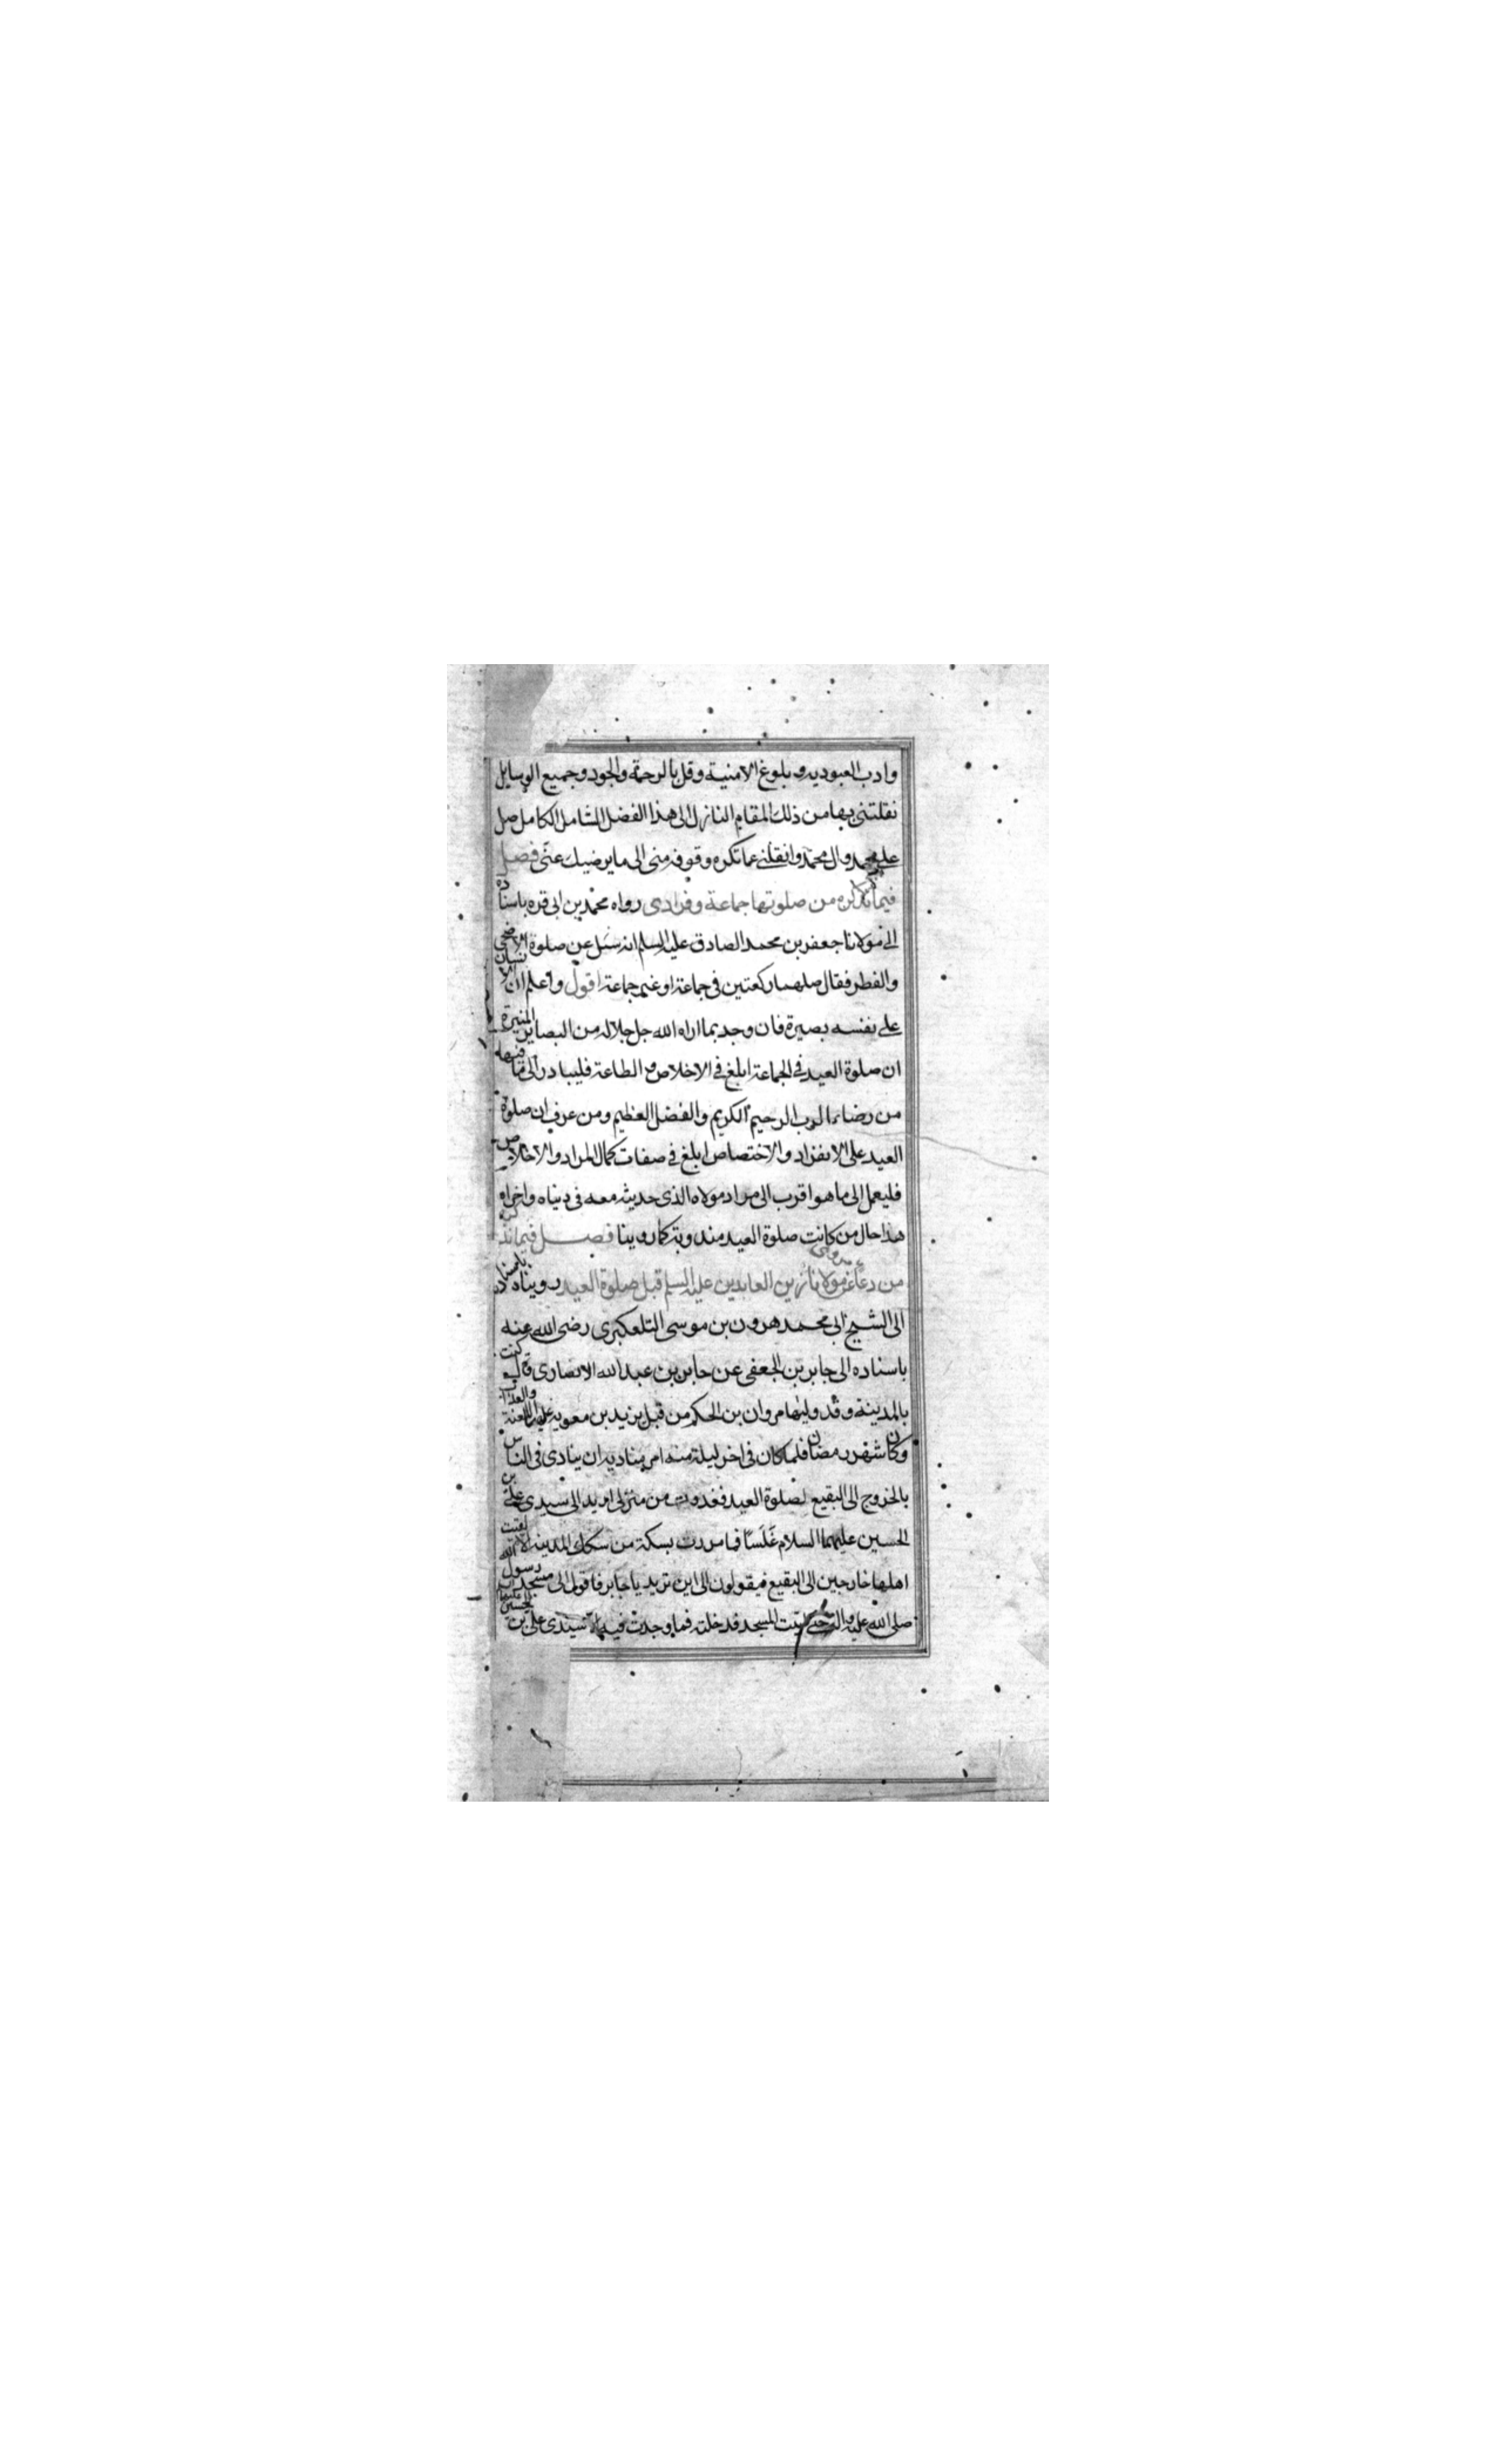 وادب العبوديه وبلوغ الامنية وقل بالرحمة والجود وجميع الوسايل
نقلتنى بها من ذلك المقام النازل الى هذا الفضل الشامل الكامل صل
على محمد وال محمد وانقلنى عما تكره وقوفه منى الى ما يرضيك عنى فصل
فيما نذكره من صلوتها جماعة وفرادى رواه محمد بن ابى قره باسناده
الى مولانا جعفر بن محمد الصادق عليه السلم انه سئل عن صلوة الاضحى
والفطر فقال صلهما ركعتين فى جماعة او غير جماعة اقول واعلم ان الانسان
على نفسه بصيرة فان وجد بما اراه الله جل جلاله من البصاير المنيرة
ان صلوة العيد فى الجماعة ابلغ فى الاخلاص و الطاعة فليبادر الى ما فيها
من رضاء الرب الرحيم الكريم والفضل العظيم ومن عرف ان صلوة
العيد على الانفراد والاختصاص ابلغ فى صفات كمال المراد والاخلاص
فليعمل الى ما هو اقرب الى مراد مولاه الذى حديثه معه فى دنياه واخراه
هذا حال من كانت صلوة العيد مندوبة كما روينا فصل فيما نذكره
من دعاء مروى عن مولانا زين العابدين عليه السلم قبل صلوة العيد رويناه باسناد
الى الشيخ ابى محمد هرون بن موسى التلعكبرى رضى الله عنه
باسناده الى جابر بن الجعفى عن جابر بن عبد الله الانصارى قال كنت
بالمدينة وقد وليها مروان بن الحكم من قبل يزيد بن معويه عليه اللعنة والعذاب
وكان شهر رمضان فلما كان فى اخر ليلة منه امر مناديه ان ينادى فى الناس
بالخروج الى البقيع لصلوة العيد فغدوت من منزلى اريد الى سيدى على بن
الحسين عليهما السلام غلسا فما مررت بسكة من سكك المدينه الا لقيت
اهلها خارجين الى البقيع فيقولون الى اين تريد يا جابر فاقول الى مسجد رسول الله
صلى الله عليه واله حتى اتيت المسجد فدخلته فما وجدت فيه الا سيدى على بن الحسين